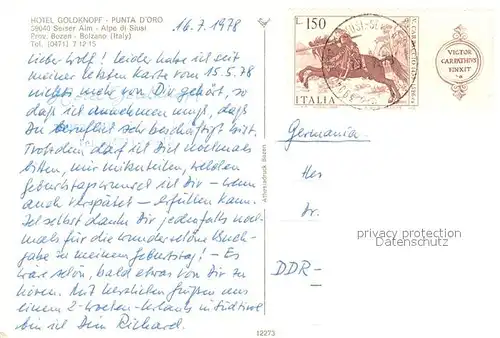 HOTEL GOLDKNOPF - PUNTA D'ORO
39040 Seiser Alm - Alpe di Siusi
Prov. Bozen - Bolzano (Italy)
Tel. (0471) 7 12 15
16.7.1978
Lieber Wolf! Leider habe ich seit
meiner letzten Karte vom 15.5.78
nichts mehr von Dir gehört, so
daß ich annehmen muß, daß
Du beruflich sehr beschäftigt bist.
Trotzdem darf ich Dich nochmals
bitten, mir mitzuteilen, welchen
Geburtstagswunsch ich Dir – wenn
auch verspätet – erfüllen kann.
Ich selbst danke Dir jedenfalls noch-
mals für die wunderschöne Buch-
gabe zu meinem Geburtstag! – Es
wäre schön, bald etwas von Dir zu
hören. Mit herzlichen Grüßen aus
einem 2-Wochen-Urlaub in Südtirol
bin ich Dein Richard.
Athesiadruck Bozen
12273
L.150
ITALIA
VICTOR
CARPATHIUS
FINXIT
Germania
Herr
Dr.
DDR-
akpool.de